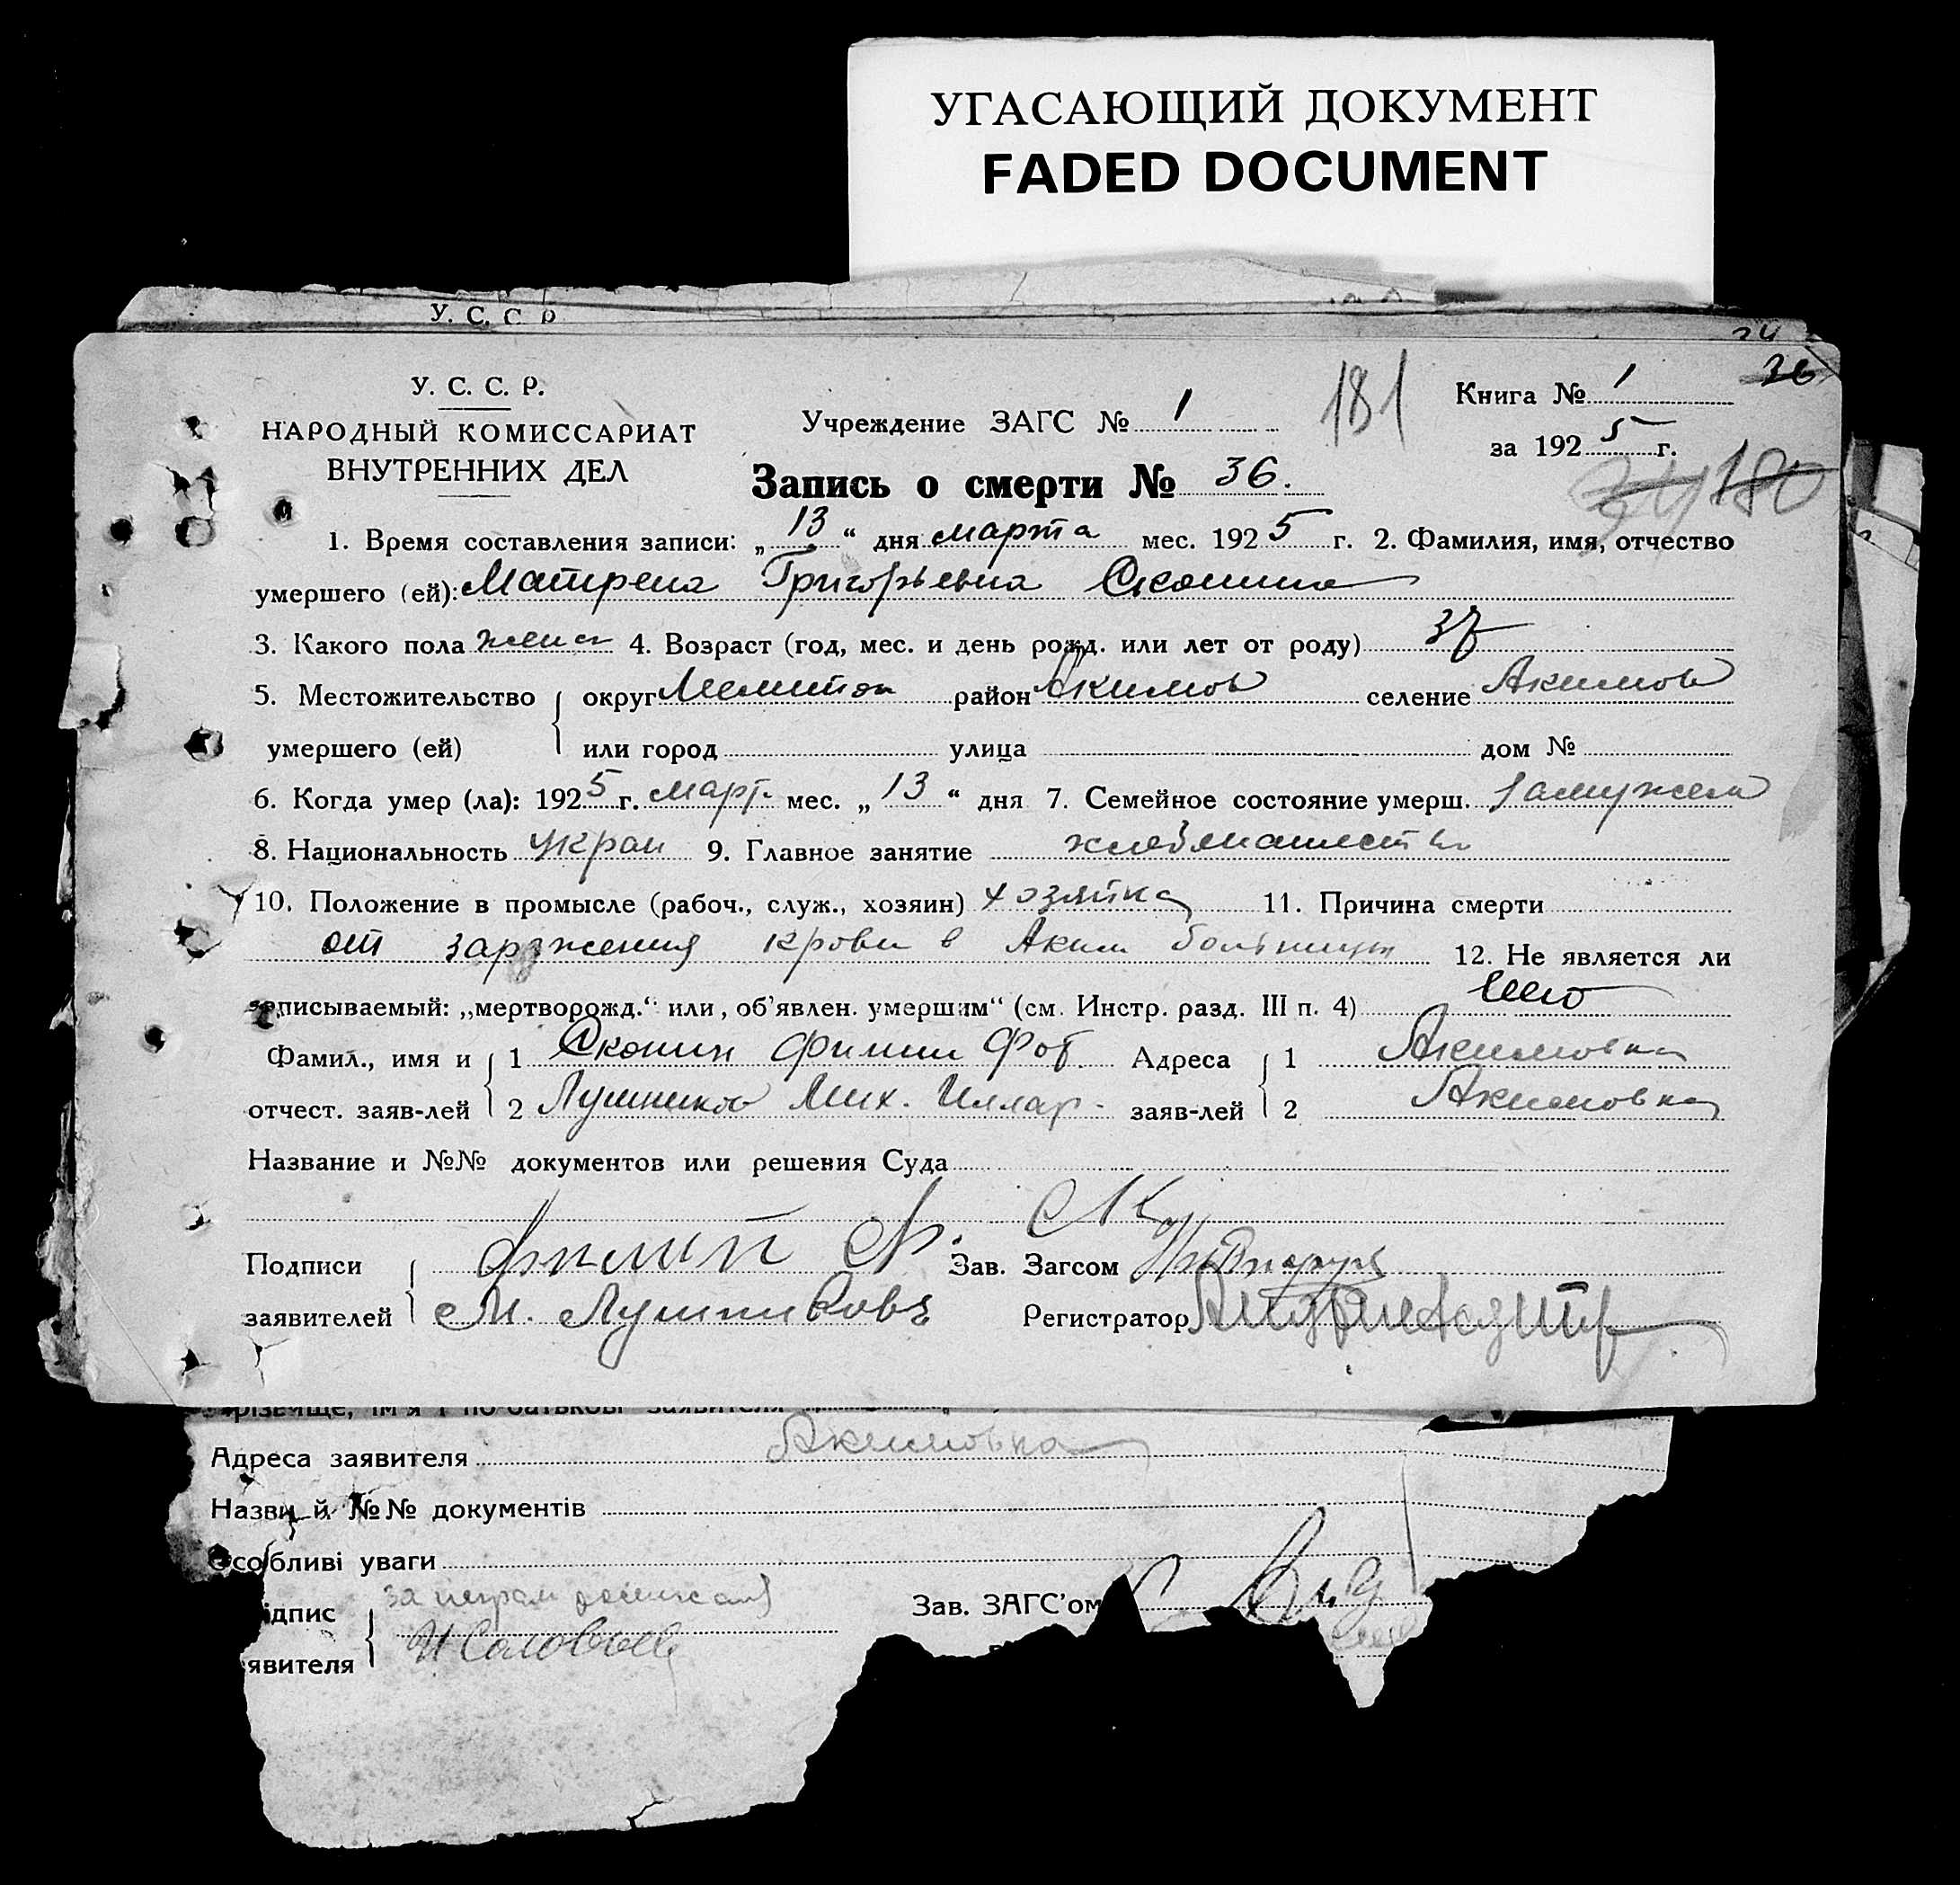 УГАСАЮЩИЙ ДОКУМЕНТ
FADED DOCUMENT
У. С. С. Р.
24
36
У. С. С. Р.
НАРОДНЫЙ КОМИССАРИАТ
ВНУТРЕННИХ ДЕЛ
Учреждение ЗАГС № 1
181
Книга № 1
за 1925 г.
180
Запись о смерти № 36.
1. Время составления записи: „13“ дня марта мес. 1925 г. 2. Фамилия, имя, отчество
умершего (ей): Матрена Григорьевна Сконина
3. Какого пола женс 4. Возраст (год, мес. и день рожд. или лет от роду) 37
5. Местожительство округ Мелитоп район Акимов селение Акимов
умершего (ей) или город улица дом №
6. Когда умер (ла): 1925 г. март. мес. „13“ дня 7. Семейное состояние умерш. замужем
8. Национальность украи 9. Главное занятие хлебопашеств
10. Положение в промысле (рабоч., служ., хозяин) хозяйка 11. Причина смерти
от заражения крови в Аким больнице 12. Не является ли
записываемый: „мертворожд.“ или „об'явлен. умершим“ (см. Инстр. разд. III п. 4)
Фамил., имя и 1 Сконин Филип Фот Адреса 1 Акимовка
отчест. заяв-лей 2 Лушников Мих. Иллар. заяв-лей 2 Акимовка
Название и №№ документов или решения Суда
Подписи Филип Ф. Ск Зав. Загсом
заявителей М. Лушников Регистратор
Прізвище, ім'я і по-батькові заявителя
Адреса заявителя Акимовка
Назви й №№ документів
Особливі уваги
ідпис за неграм Зав. ЗАГС'ом
явителя И Соловьев